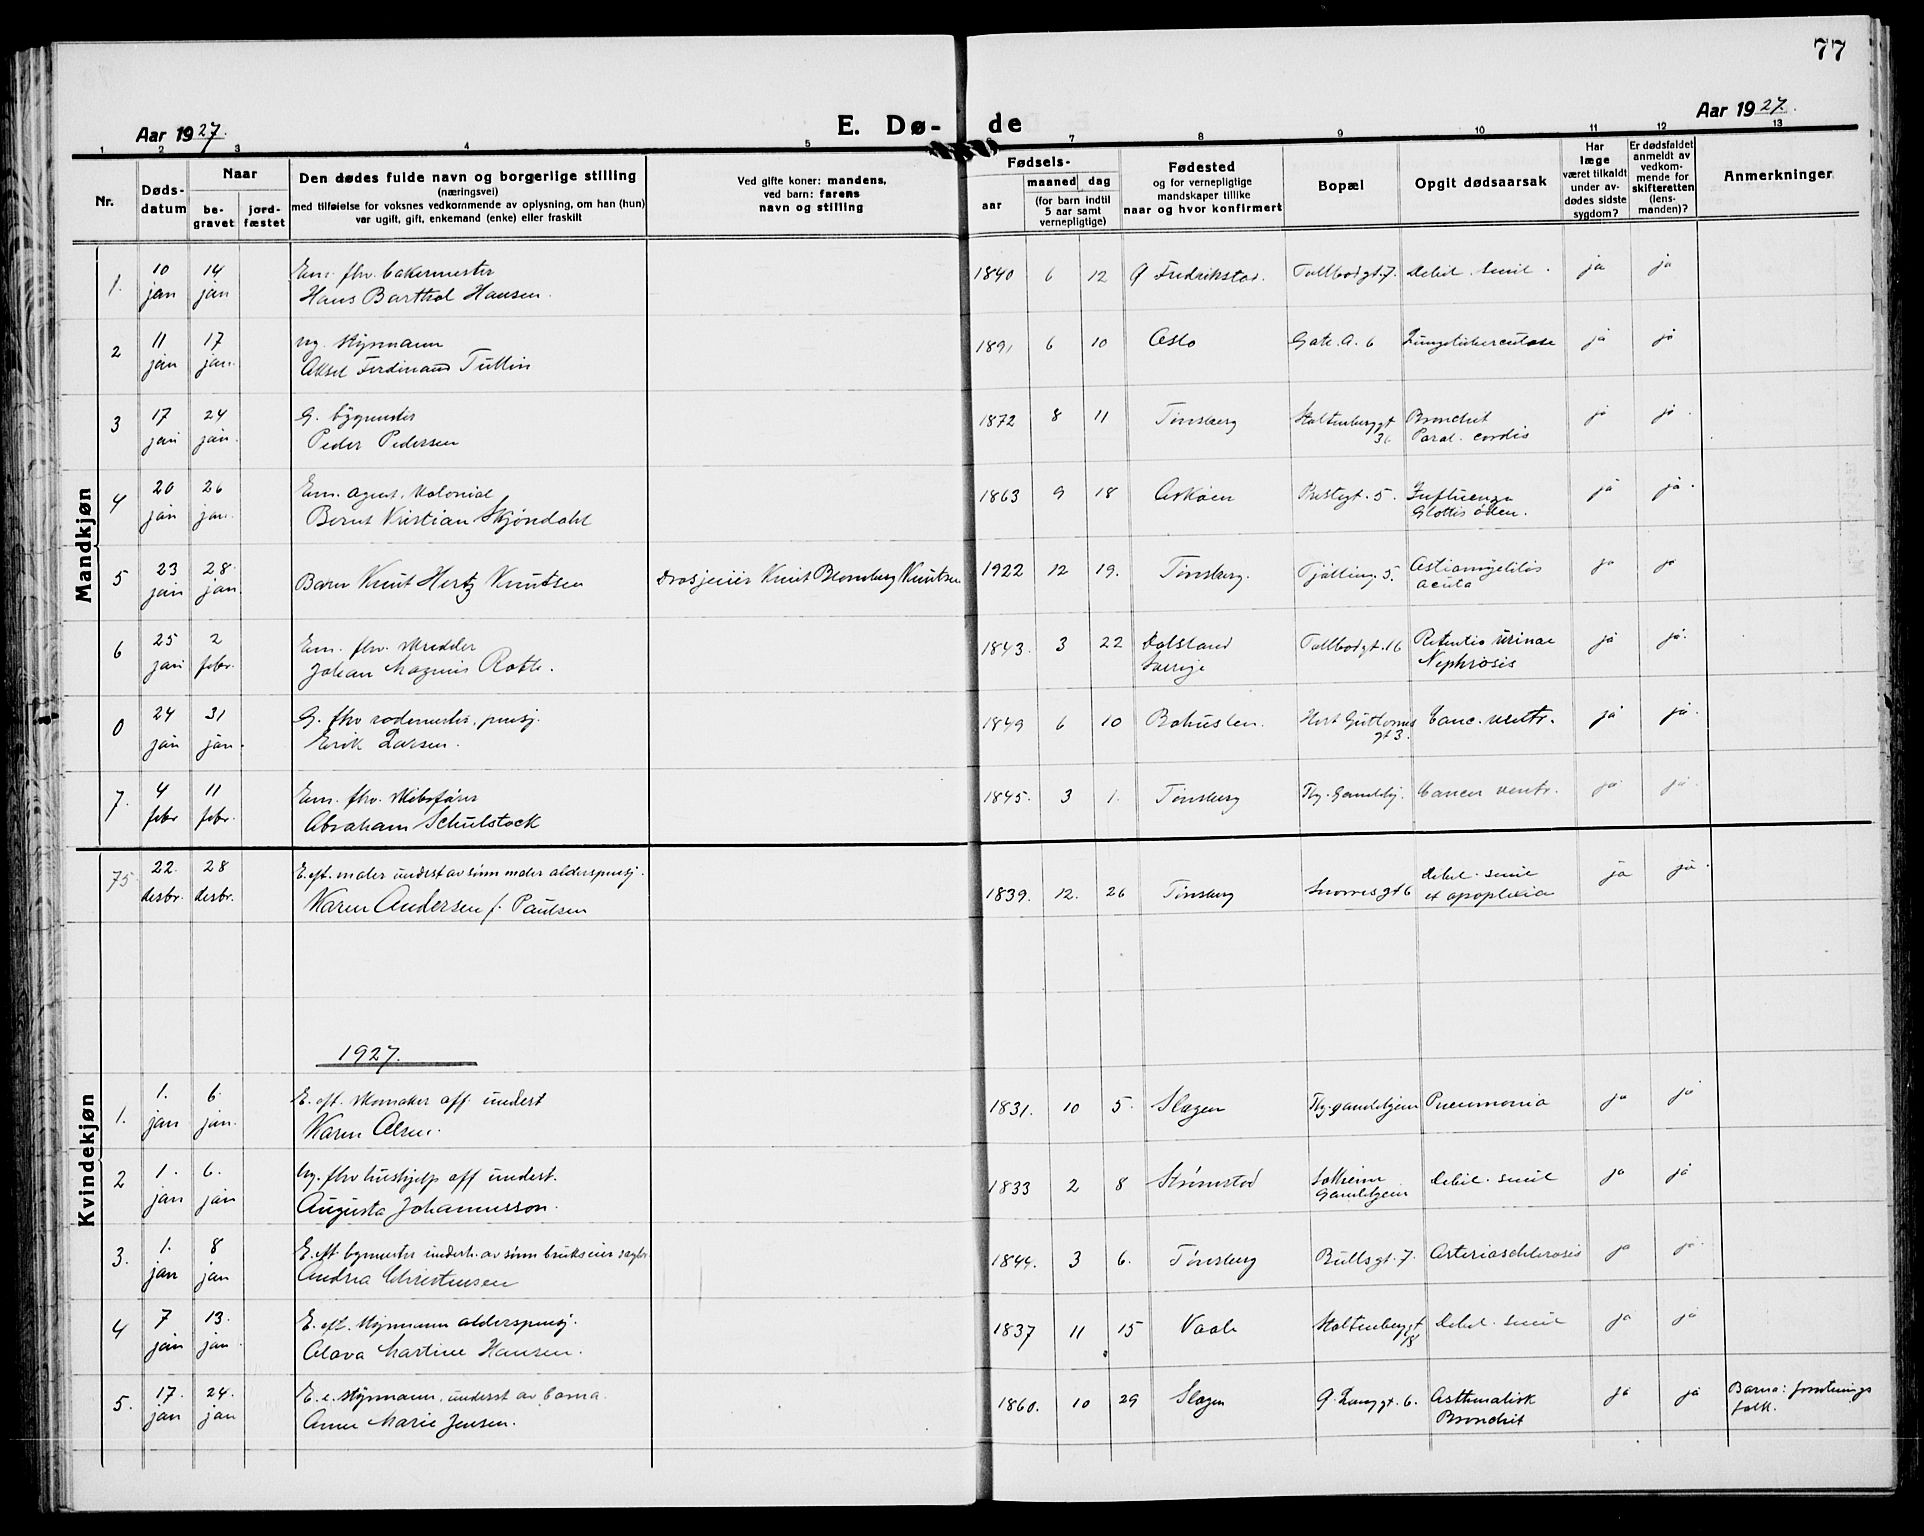 77
Aar 1927.
E. Dø-
de
Aar 1927.
1 2 3 4 5 7 8 9 10 11 12 13
Nr.
Døds-
datum
Naar
be-
gravet
jord-
fæstet
Den dødes fulde navn og borgerlige stilling
(næringsvei)
med tilføielse for voksnes vedkommende av oplysning, om han (hun)
var ugift, gift, enkemand (enke) eller fraskilt
Ved gifte koner: mandens,
ved barn: farens
navn og stilling
Fødsels-
aar
maaned dag
(for barn indtil
5 aar samt
vernepligtige)
Fødested
og for vernepligtige
mandskaper tillike
naar og hvor konfirmert
Bopæl
Opgit dødsaarsak
Har
læge
været tilkaldt
under av-
dødes sidste
sygdom?
Er dødsfaldet
anmeldt av
vedkom-
mende for
skifteretten
(lens-
manden)?
Anmerkninger
Mandkjøn
1. 10 jan 14 jan Em. fhv. bakermester
Hans Barthol Hansen. 1840 6 12 Fredrikstad. Tollbodgt. 7. Debil. senil. ja ja
2 11 jan 17 jan. ug. styrmann
Aksel Ferdinand Tullin 1891 6 10 Oslo Gate. A. 6 Lungetuberculose ja ja
3 17 jan 24 jan. G. bygmester
Peder Pedersen 1872 8 11 Tønsberg Stoltenberggt Bronchit
Paral. cordis ja ja.
4 20 jan 26 jan. Em. agent, kolonial
Bernt Kristian Skjøndahl 1863 9 18 Askøen Prestegt. 5. Influenza
Glottis øden. ja ja.
5 23 jan 28. jan. Barn Knut Hertz Knutsen Drosjeeier Knut Blomberg Knutsen 1922 12 19. Tønsberg. Tjølling. 5. acuta ja ja
6 25 jan 2 febr. Em. fhv. skredder
Johan Magnus Roth. 1843. 3 22 Dalsland
Sverige Tollbodgt. 16 Retentio urinae
Nephrosis ja ja.
0 24 jan 31 jan. G. fhv rodemester, pensj.
Erik Larsen. 1849 6 10 Bohuslen. Hert Guttorms
gt 3. Canc. ventr. ja ja.
7. 4 febr 11 febr. Em. fhv. skibsfører
Abraham Schulstock 1845. 3 1. Tønsberg Ty. Gamlehj. Cancer ventr. ja ja.
Kvindekjøn
75 22. desbr. 28 desbr. E. eft. maler underst av sønn maler alderspensj.
Karen Andersen f. Paulsen 1839. 12. 26 Tønsberg Snorresgt 6 Debil. senil
et apoplexia ja ja.
1927.
1. 1. jan 6. jan. E. eft. skomaker off. underst
Karen Olsen. 1831. 10 5. Slagen Ty. gamlehjem Pneumonia ja ja
2 1. jan 6. jan Ug. fhv hushjelp off underst.
Augusta Johannesson. 1833 2 8 Strømstad Solheim
Gamlehjem Debil. senil ja ja
3. 1. jan 8 jan E. eft bymester underh. av sønn brukseier
Andrea Christensen 1844. 3 6. Tønsberg Bullsgt. 7. Arterioschlerosis ja ja.
4 7 jan 13. jan. E. eft. styrmann alderspensj.
Olava Martine Hansen. 1837 11 15 Vaale Stoltenberggt
18 Debil. senil ja ja
5. 17. jan 24. jan E. e. styrmann, underst av barna.
Anne Marie Jensen. 1860. 10 29 Slagen 6. Asthmatisk
Bronchit ja ja Barna: forretnings
folk.